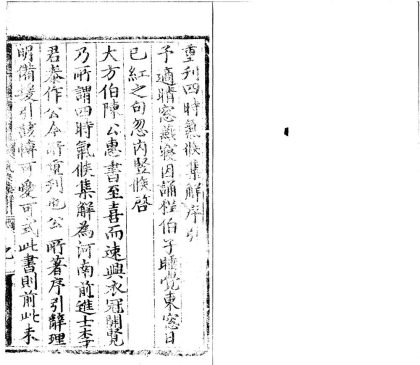 重刊四時氣候集解序引
予適晴窓燕寢因誦程伯子睡覺東窓日
已紅之句忽内豎候啓
大方伯陳公惠書至喜而速興衣冠開覧
乃所謂四時氣候集解為河南前進士李
君泰作公令將項刊也公所著序引辭理
明備援引該博可愛可式此書則前此未